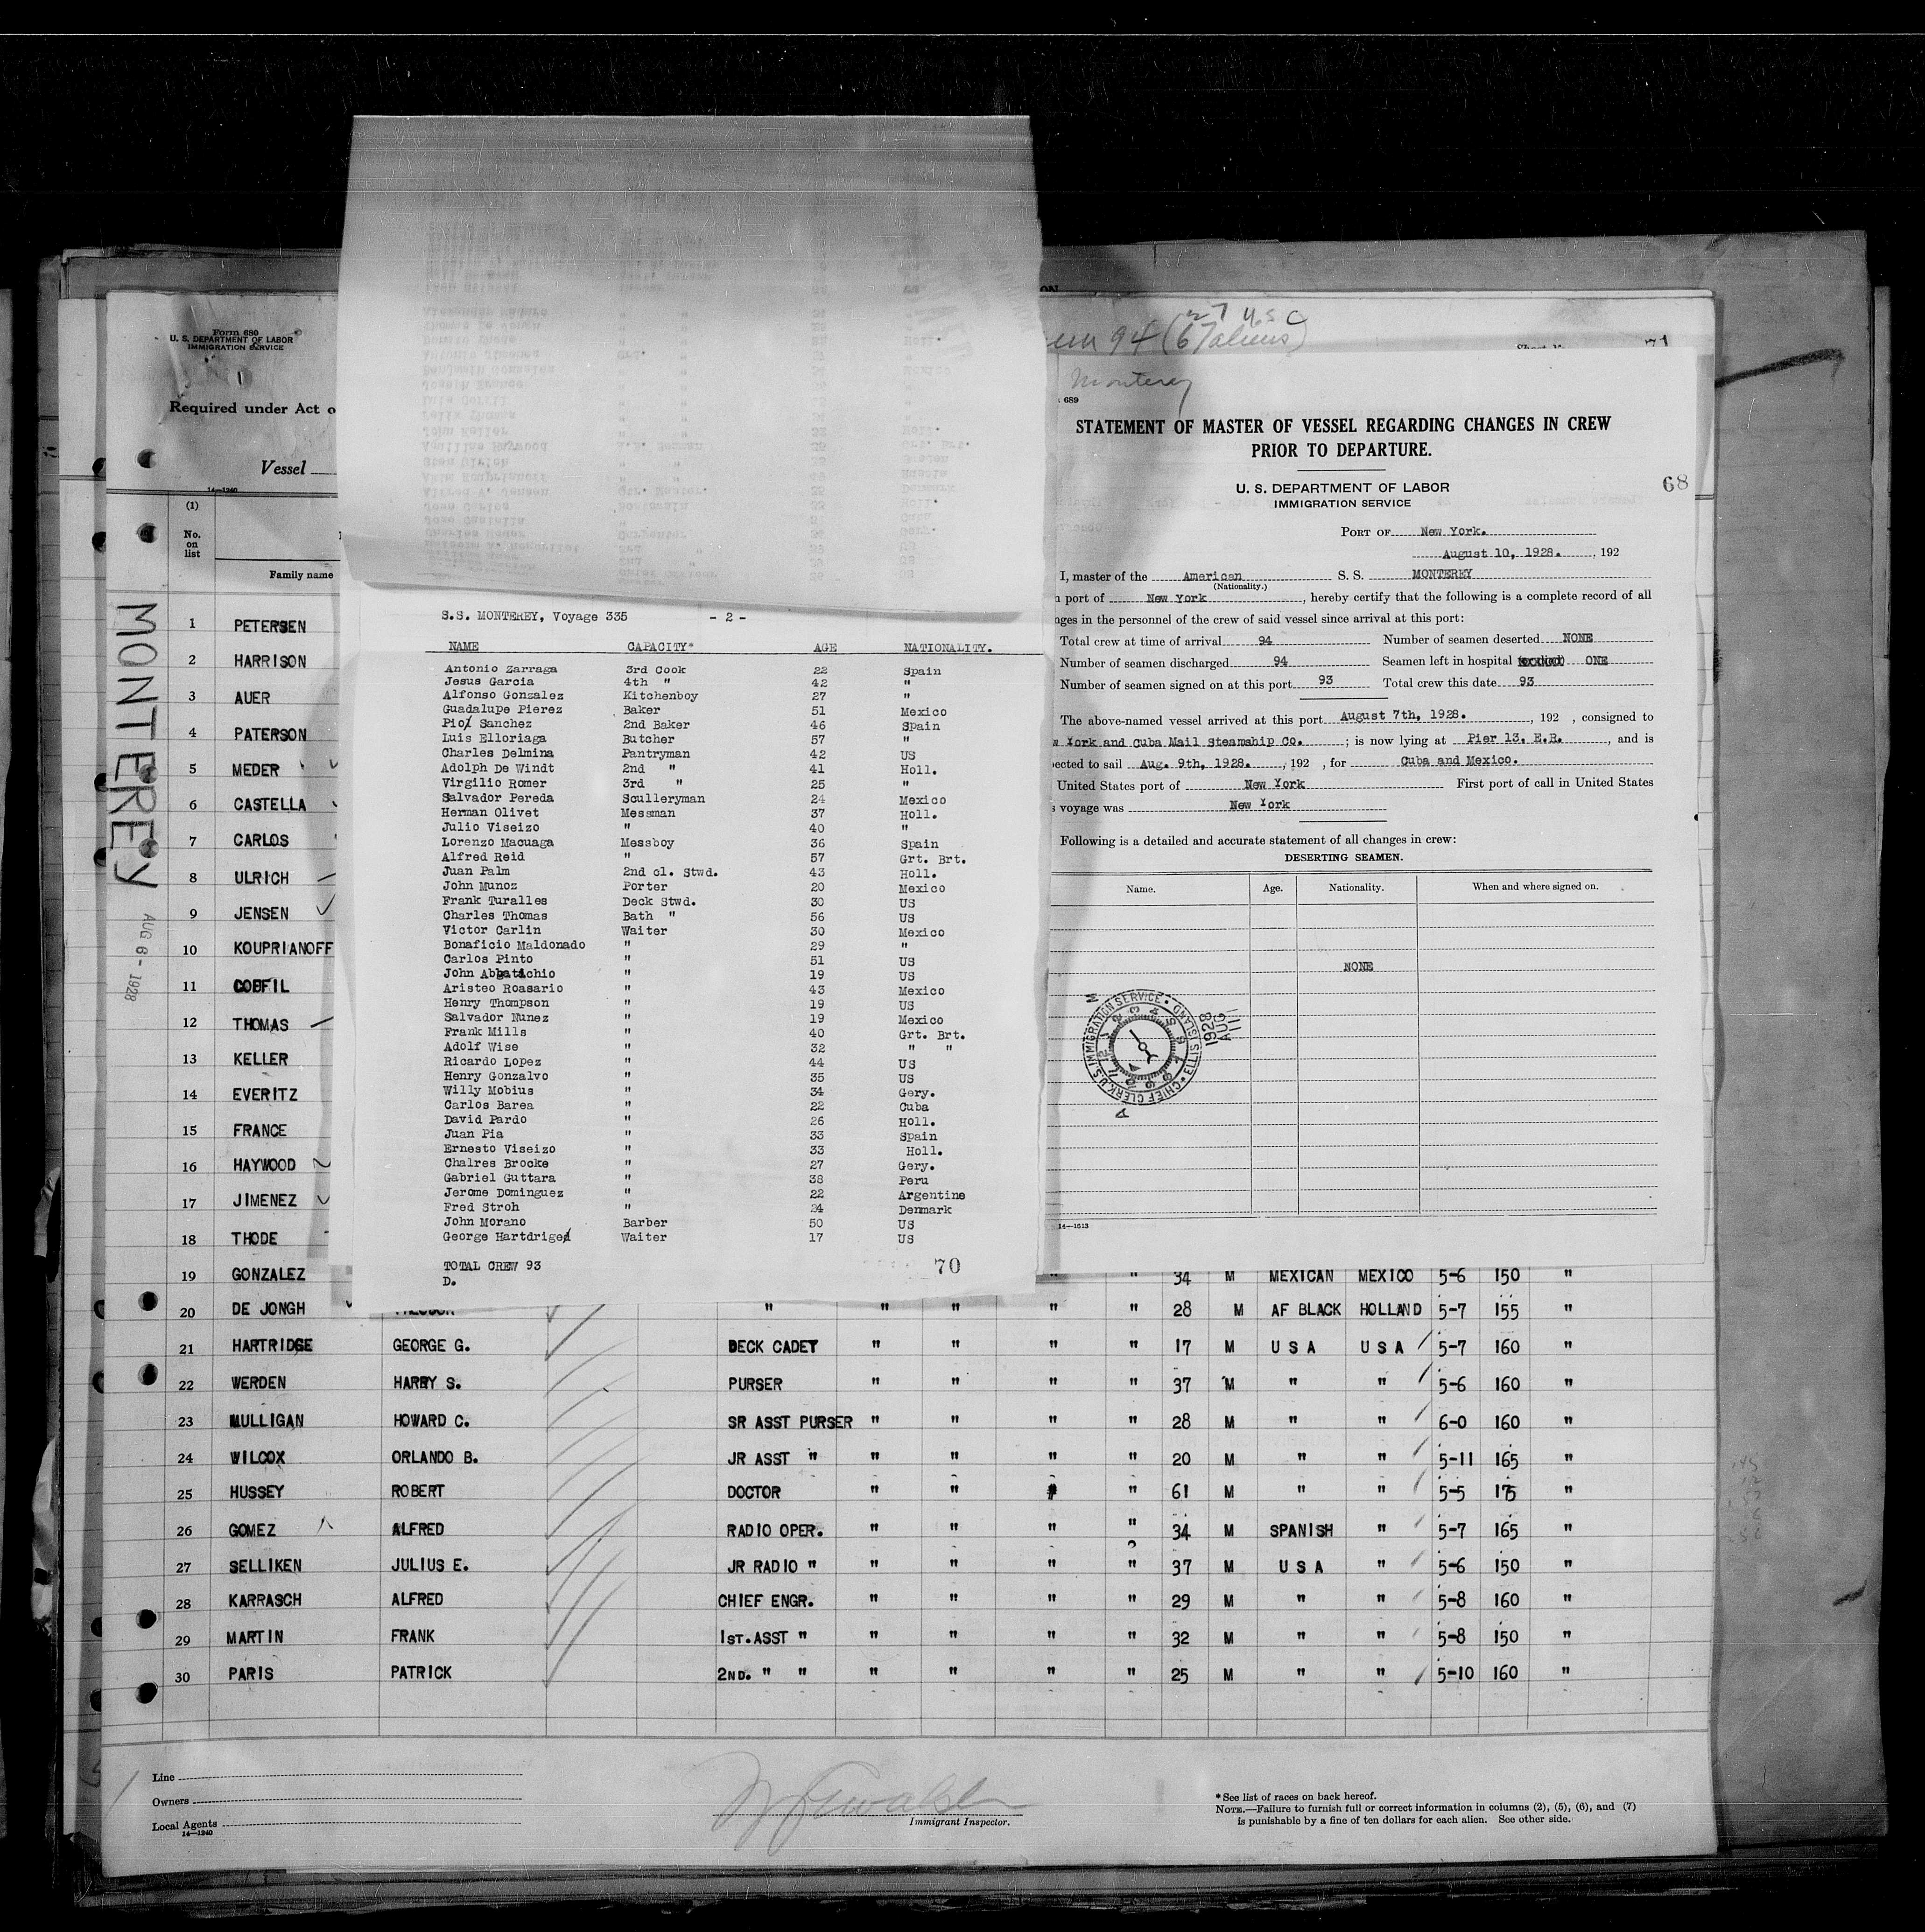 Form 680
U. S. DEPARTMENT OF LABOR
IMMIGRATION SERVICE
Required under Act o
Vessel
14—1240
(1)
No.
on
list
Family name
MONTEREY
AUG 6 - 1928
1 PETERSEN
2 HARRISON
3 AUER
4 PATERSON
5 MEDER
6 CASTELLA
7 CARLOS
8 ULRICH
9 JENSEN
10 KOUPRIANOFF
11
12 THOMAS
13 KELLER
14 EVERITZ
15 FRANCE
16 HAYWOOD
17 JIMENEZ
18 THODE
S.S. MONTEREY, Voyage 335 - 2 -
NAME CAPACITY* AGE NATIONALITY.
Antonio Zarraga 3rd Cook 22 Spain
Jesus Garcia 4th " 42 "
Alfonso Gonzalez Kitchenboy 27 "
Guadalupe Pierez Baker 51 Mexico
Pio Sanchez 2nd Baker 46 Spain
Luis Elloriaga Butcher 57 "
Charles Delmina Pantryman 42 US
Adolph De Windt 2nd " 41 Holl.
Virgilio Romer 3rd " 25 "
Salvador Pereda Sculleryman 24 Mexico
Herman Olivet Messman 37 Holl.
Julio Viseizo " 40 "
Lorenzo Macuaga Messboy 36 Spain
Alfred Reid " 57 Grt. Brt.
Juan Palm 2nd cl. Stwd. 43 Holl.
John Munoz Porter 20 Mexico
Frank Turalles Deck Stwd. 30 US
Charles Thomas Bath " 56 US
Victor Carlin Waiter 30 Mexico
Bonaficio Maldonado " 29 "
Carlos Pinto " 51 US
John Abbatichio " 19 US
Aristeo Roasario " 43 Mexico
Henry Thompson " 19 US
Salvador Nunez " 19 Mexico
Frank Mills " 40 Grt. Brt.
Adolf Wise " 32 " "
Ricardo Lopez " 44 US
Henry Gonzalvo " 35 US
Willy Mobius " 34 Gery.
Carlos Barea " 22 Cuba
David Pardo " 26 Holl.
Juan Pia " 33 Spain
Ernesto Viseizo " 33 Holl.
Chalres Brocke " 27 Gery.
Gabriel Guttara " 38 Peru
Jerome Dominguez " 22 Argentine
Fred Stroh " 24 Denmark
John Morano Barber 50 US
George Hartdriged Waiter 17 US
TOTAL CREW 93
D.
70
27 U.S.C
94 (67 aliens)
Monterey
71
689
STATEMENT OF MASTER OF VESSEL REGARDING CHANGES IN CREW
PRIOR TO DEPARTURE.
U. S. DEPARTMENT OF LABOR
IMMIGRATION SERVICE
68
PORT OF New York.
August 10, 1928. , 192
I, master of the American S. S. MONTEREY
(Nationality.)
port of New York , hereby certify that the following is a complete record of all
nges in the personnel of the crew of said vessel since arrival at this port:
Total crew at time of arrival 94 Number of seamen deserted NONE
Number of seamen discharged 94 Seamen left in hospital ONE
Number of seamen signed on at this port 93 Total crew this date 93
The above-named vessel arrived at this port August 7th, 1928. , 192 , consigned to
w York and Cuba Mail Steamship Co. ; is now lying at Pier 13, E.R. , and is
ected to sail Aug. 9th, 1928. , 192 , for Cuba and Mexico.
United States port of New York First port of call in United States
s voyage was New York
Following is a detailed and accurate statement of all changes in crew:
DESERTING SEAMEN.
Name. Age. Nationality. When and where signed on.
NONE
U.S. IMMIGRATION SERVICE • ELLIS ISLAND • CHIEF CLERK
AUG 1928
14—1513
19 GONZALEZ " " 34 M MEXICAN MEXICO 5-6 150 "
20 DE JONGH " " " " " 28 M AF BLACK HOLLAND 5-7 155 "
21 HARTRIDGE GEORGE G. DECK CADET " " " " 17 M U S A U S A 5-7 160 "
22 WERDEN HARRY S. PURSER " " " " 37 M " " 5-6 160 "
23 MULLIGAN HOWARD C. SR ASST PURSER " " " " 28 M " " 6-0 160 "
24 WILCOX ORLANDO B. JR ASST " " " " " 20 M " " 5-11 165 "
25 HUSSEY ROBERT DOCTOR " " " " 61 M " " 5-5 175 "
26 GOMEZ ALFRED RADIO OPER. " " " " 34 M SPANISH " 5-7 165 "
27 SELLIKEN JULIUS E. JR RADIO " " " " " 37 M U S A " 5-6 150 "
28 KARRASCH ALFRED CHIEF ENGR. " " " " 29 M " " 5-8 160 "
29 MARTIN FRANK 1ST. ASST " " " " " 32 M " " 5-8 150 "
30 PARIS PATRICK 2ND. " " " " " " 25 M " " 5-10 160 "
Line
Owners
Local Agents
14—1240
Immigrant Inspector.
* See list of races on back hereof.
NOTE.—Failure to furnish full or correct information in columns (2), (5), (6), and (7)
is punishable by a fine of ten dollars for each alien. See other side.